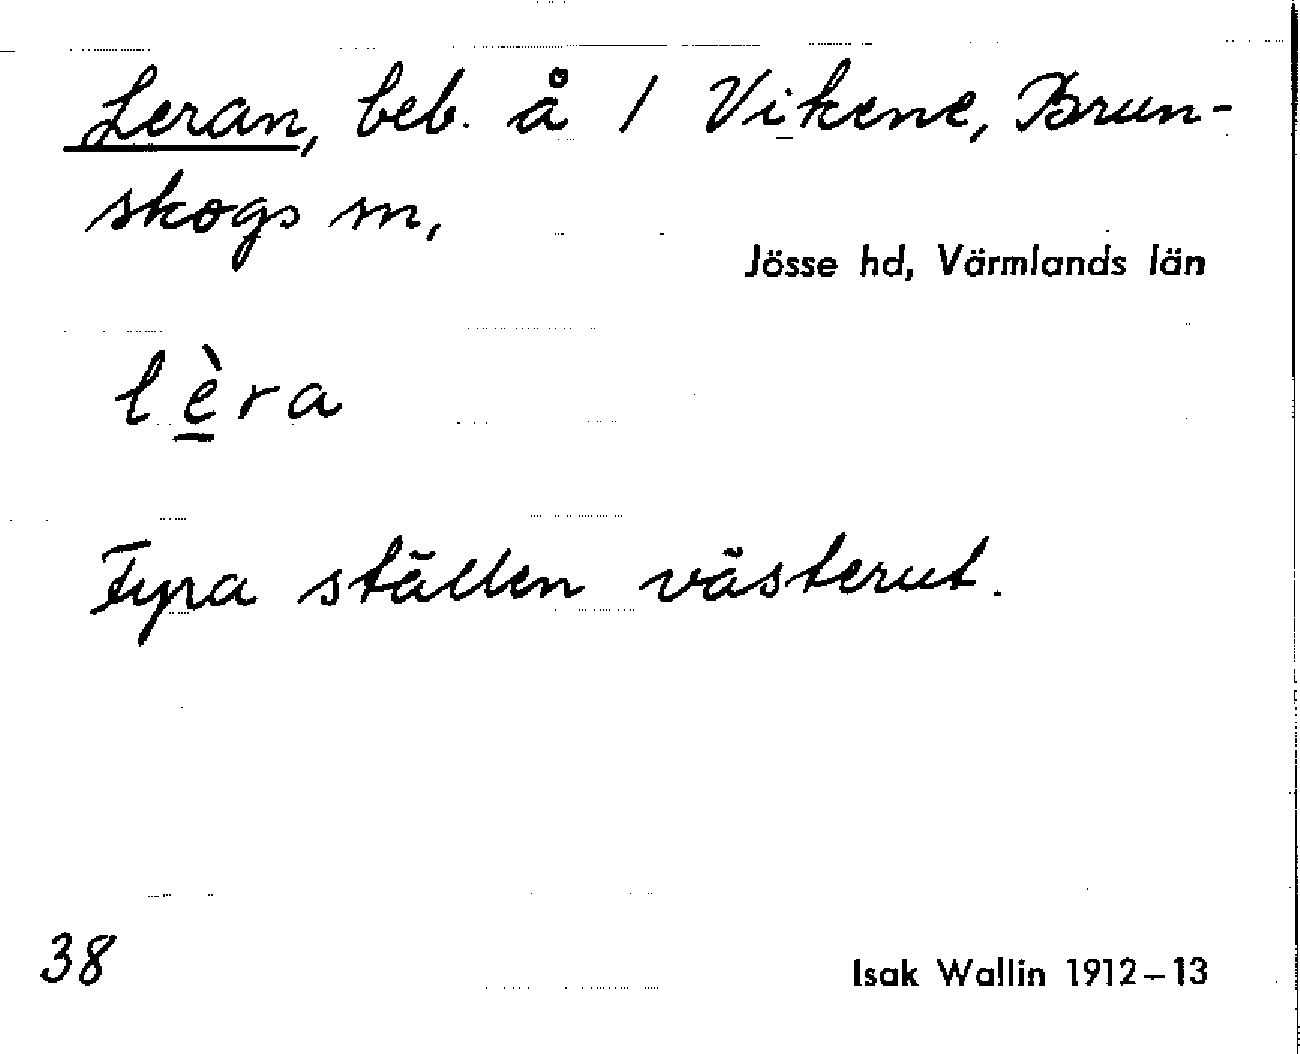 Leran, beb. å 1 Vikene, Brun-
skogs sn,
Jösse hd, Värmlands län
lèra
Fyra ställen västerut.
38
Isak Wallin 1912–13